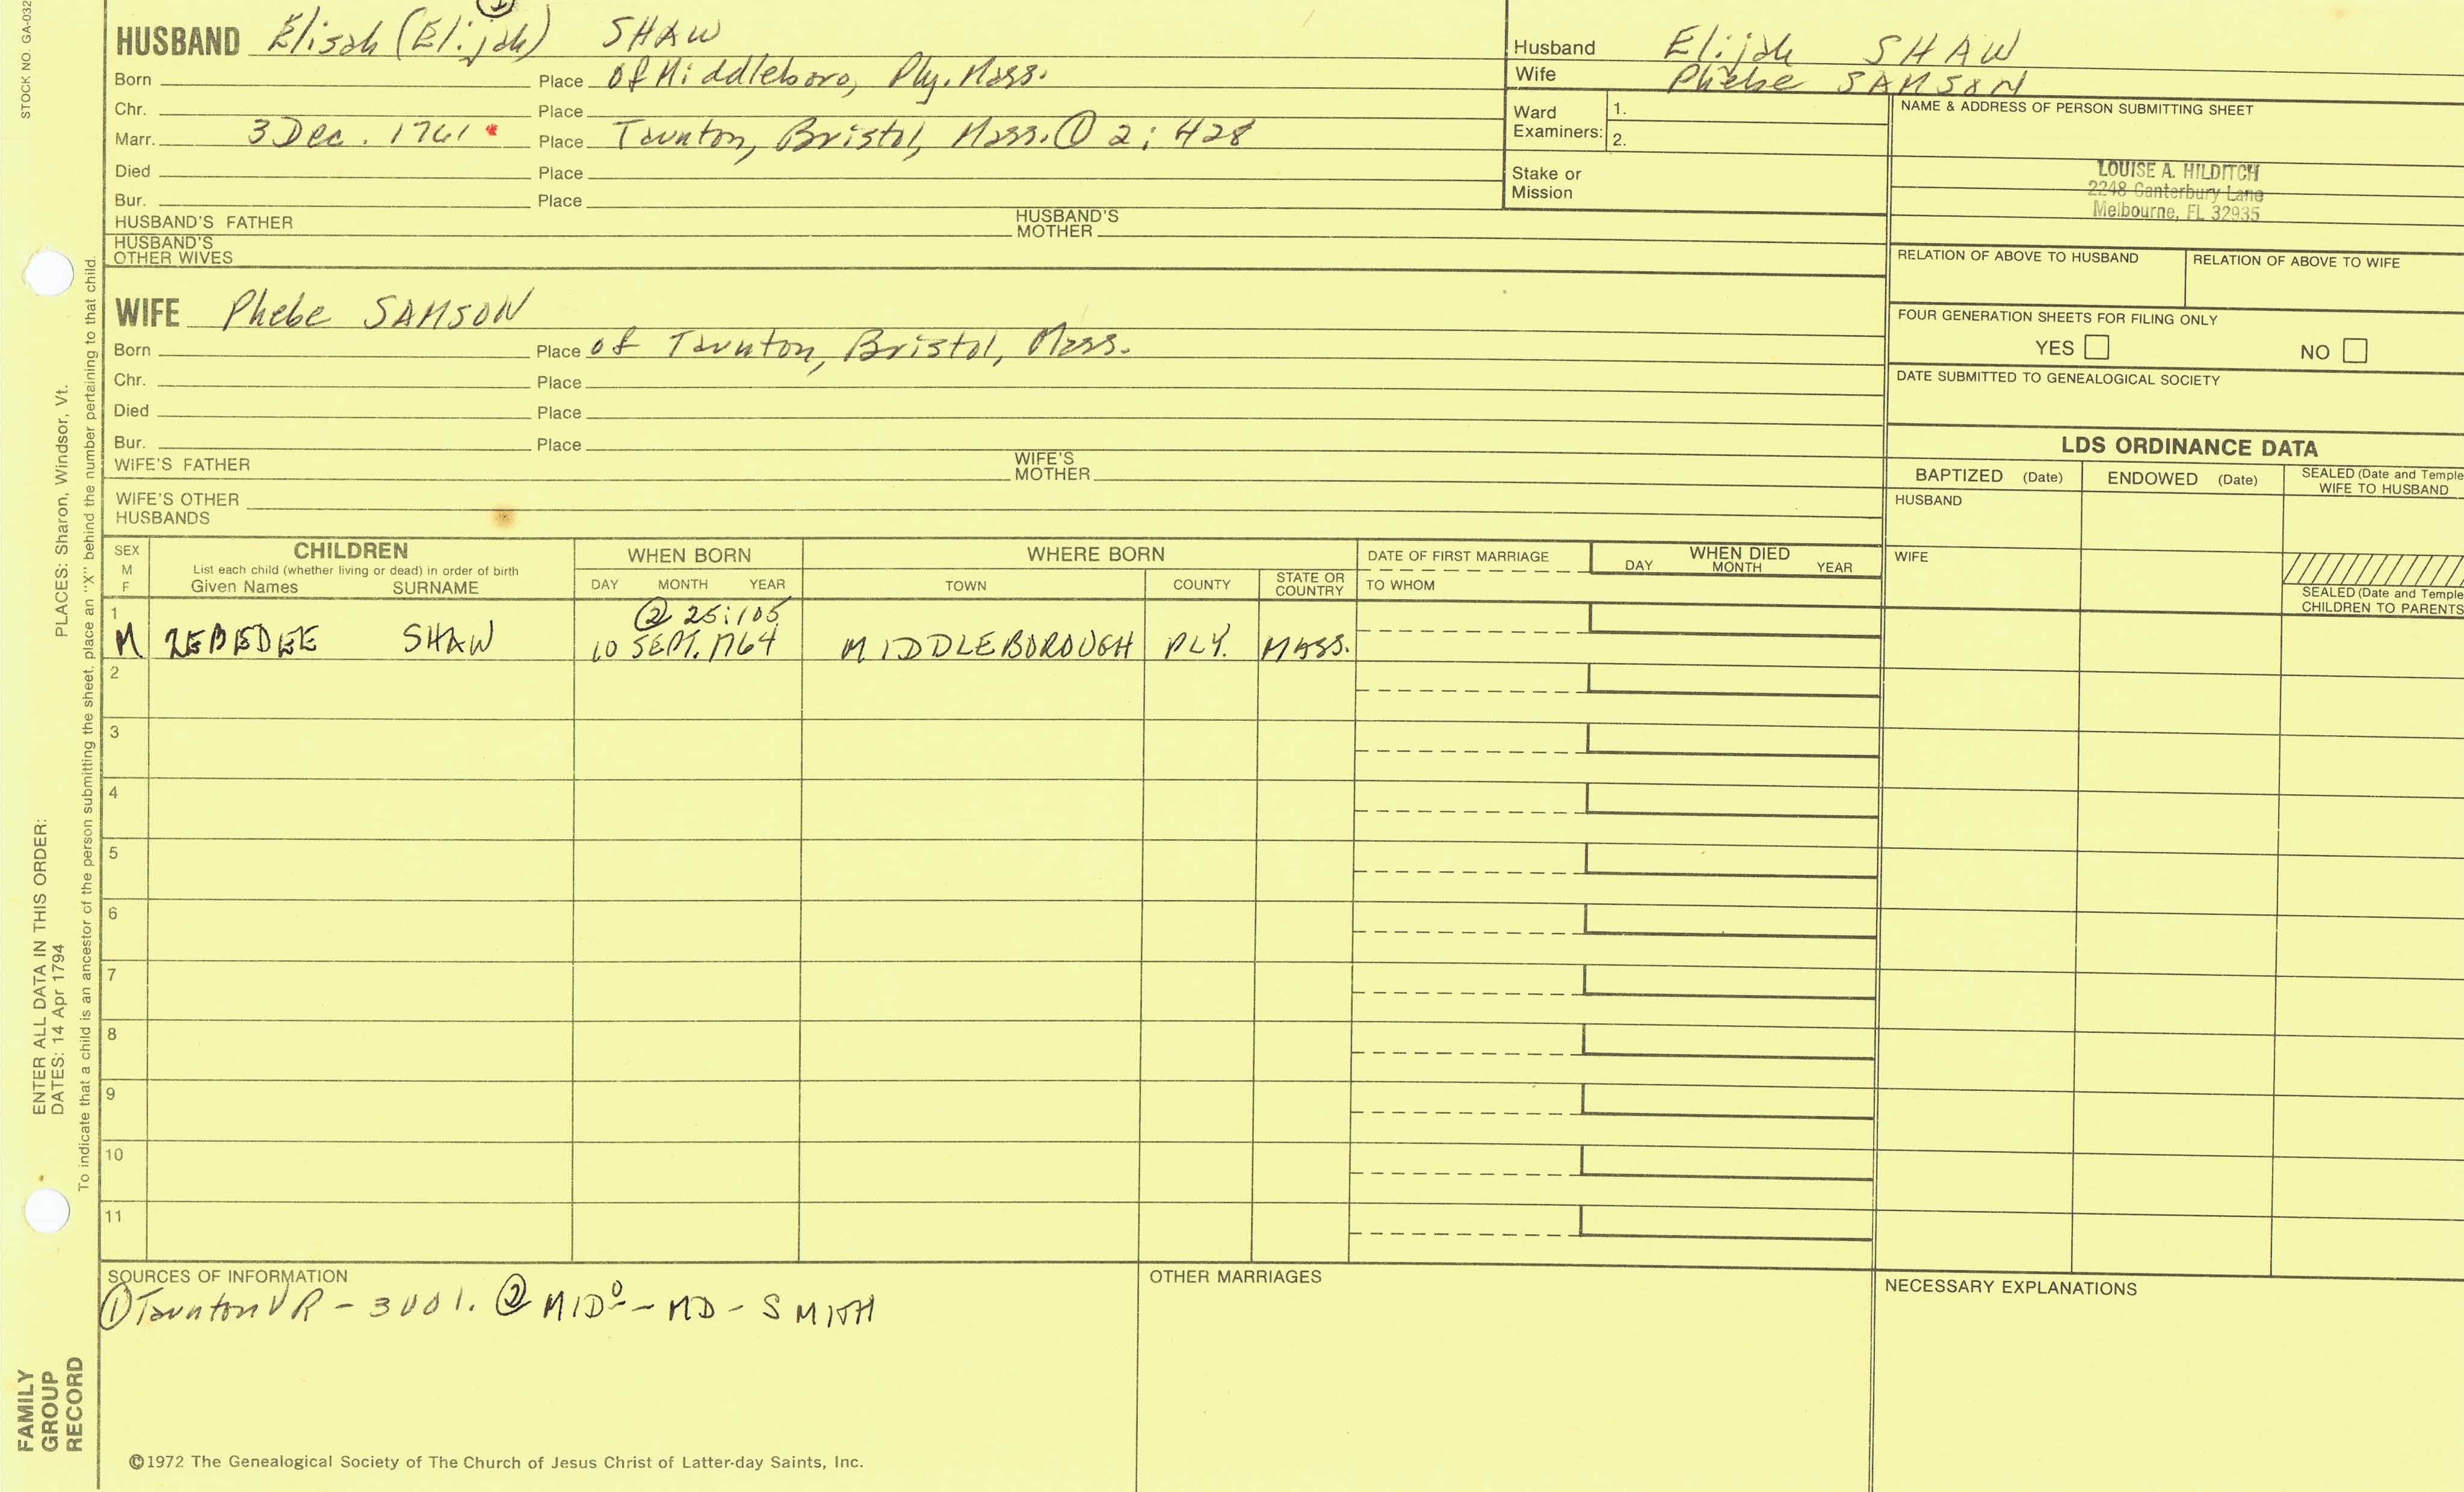 STOCK NO. GA-032
①
HUSBAND Elisah (Elijah) SHAW
Born Place of Middleboro, Ply. Mass.
Chr. Place
Marr. 3 Dec. 1761 Place Taunton, Bristol, Mass. ① 2:428
Died Place
Bur. Place
HUSBAND'S FATHER HUSBAND'S MOTHER
HUSBAND'S OTHER WIVES
Husband Elijah SHAW
Wife Phebe SAMSON
Ward Examiners: 1.
2.
Stake or Mission
NAME & ADDRESS OF PERSON SUBMITTING SHEET
LOUISE A. HILDITCH
2248 Canterbury Lane
Melbourne, FL 32935
RELATION OF ABOVE TO HUSBAND RELATION OF ABOVE TO WIFE
FOUR GENERATION SHEETS FOR FILING ONLY
YES NO
DATE SUBMITTED TO GENEALOGICAL SOCIETY
WIFE Phebe SAMSON
Born Place of Taunton, Bristol, Mass.
Chr. Place
Died Place
Bur. Place
WIFE'S FATHER WIFE'S MOTHER
WIFE'S OTHER HUSBANDS
LDS ORDINANCE DATA
BAPTIZED (Date) ENDOWED (Date) SEALED (Date and Temple
WIFE TO HUSBAND
HUSBAND
WIFE
SEALED (Date and Temple
CHILDREN TO PARENTS
SEX
M
F
CHILDREN
List each child (whether living or dead) in order of birth
Given Names SURNAME
WHEN BORN
DAY MONTH YEAR
WHERE BORN
TOWN COUNTY STATE OR COUNTRY
DATE OF FIRST MARRIAGE
TO WHOM
WHEN DIED
DAY MONTH YEAR
1
② 25:105
M ZEBEDEE SHAW 10 SEPT. 1764 MIDDLEBOROUGH PLY. MASS.
2
3
4
5
6
7
8
9
10
11
SOURCES OF INFORMATION
① Taunton VR - 3001. ② MIDº - MD - SMITH
OTHER MARRIAGES
NECESSARY EXPLANATIONS
©1972 The Genealogical Society of The Church of Jesus Christ of Latter-day Saints, Inc.
FAMILY
GROUP
RECORD
ENTER ALL DATA IN THIS ORDER:
DATES: 14 Apr 1794
PLACES: Sharon, Windsor, Vt.
To indicate that a child is an ancestor of the person submitting the sheet, place an "X" behind the number pertaining to that child.